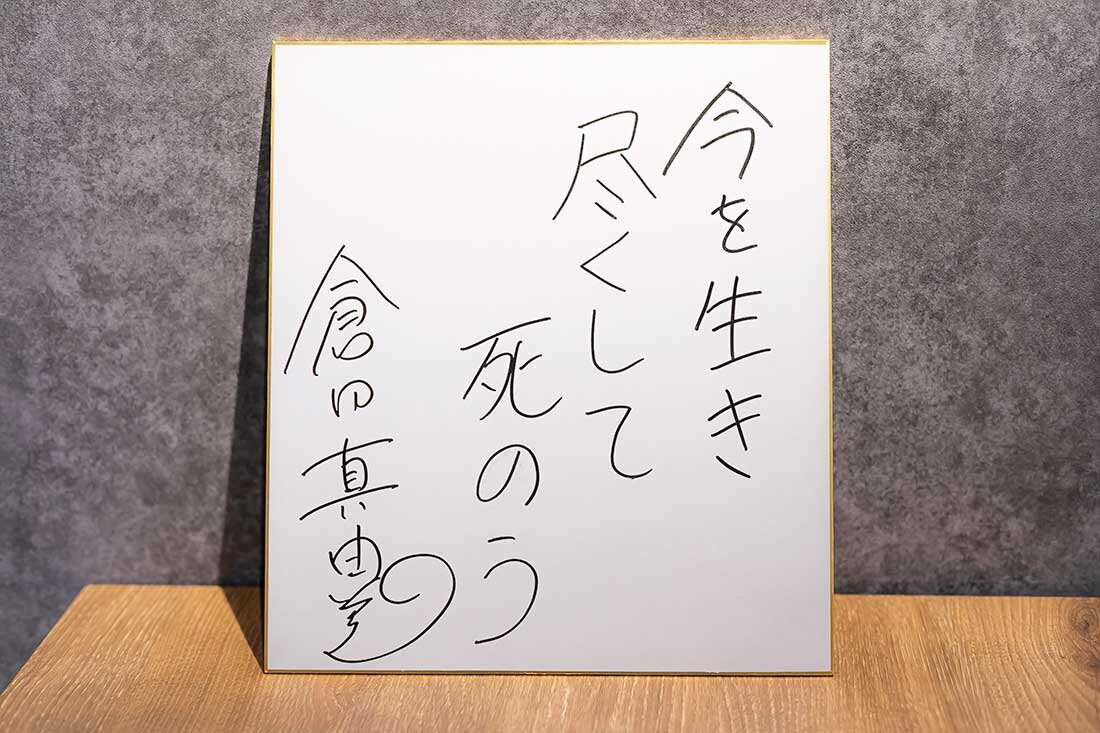 今を生き
尽くして
死のう
倉田真由美